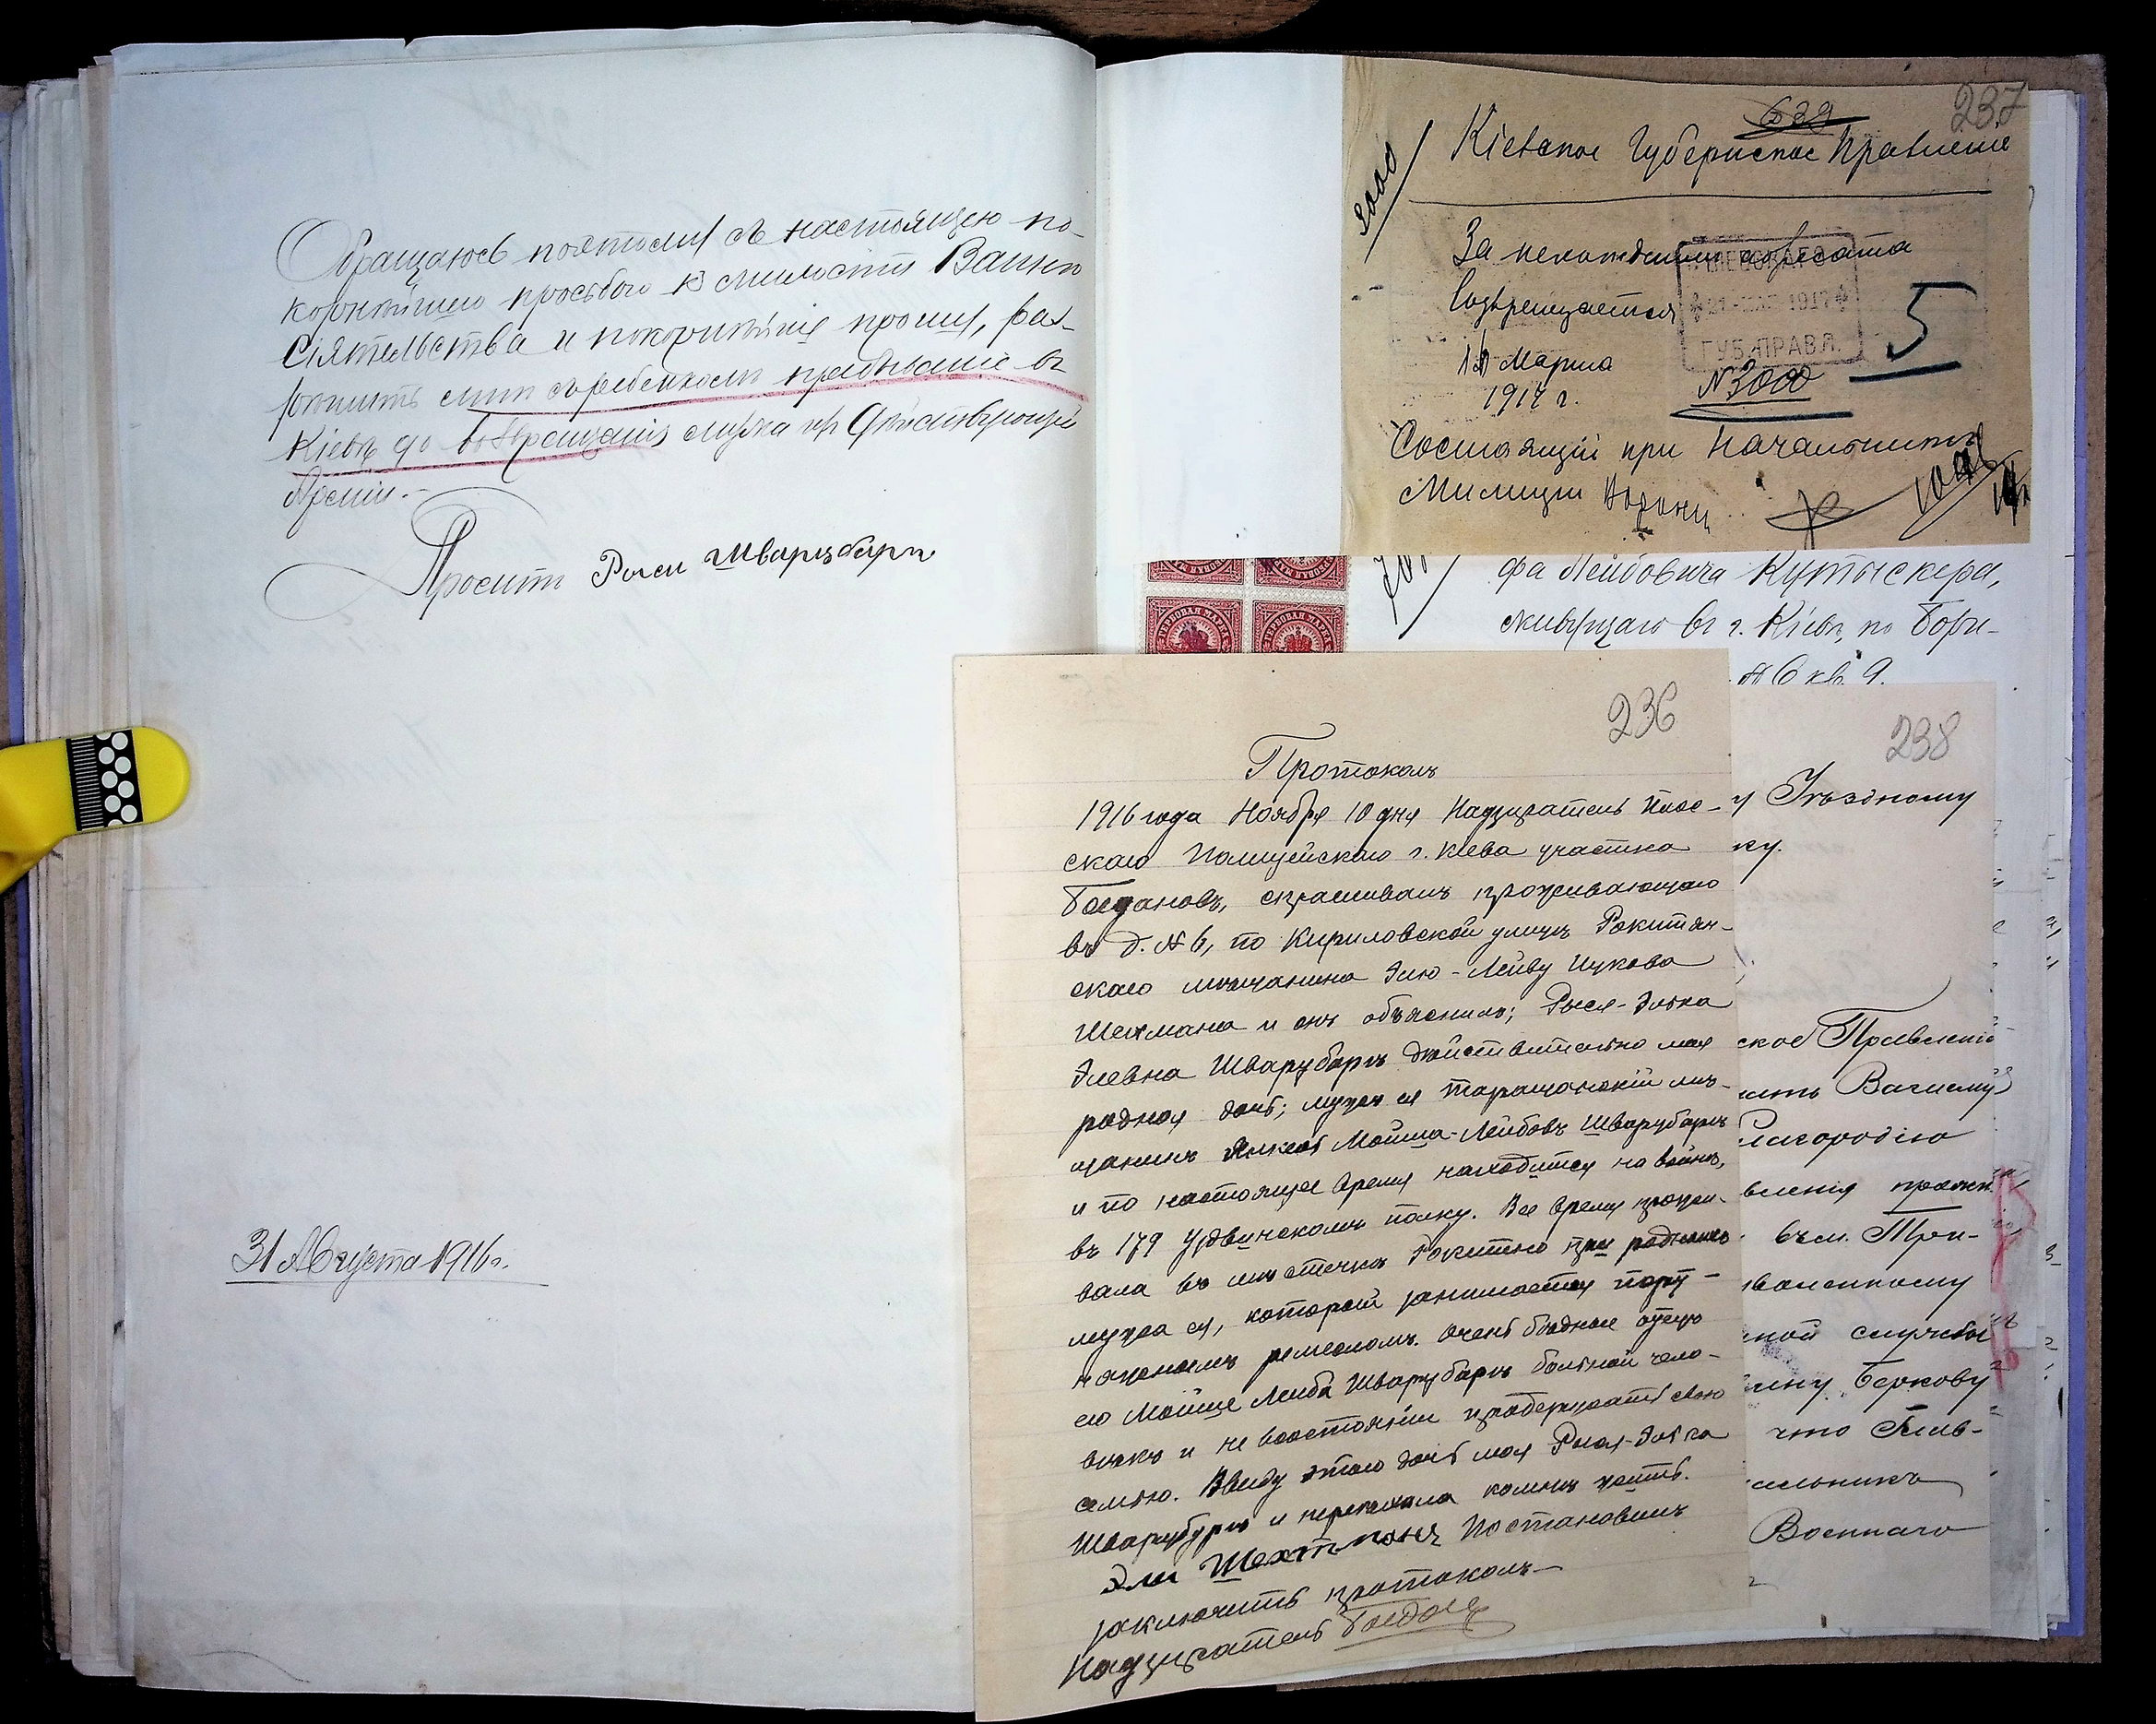 Обращаюсь поэтому съ настоящею по-
корнѣйшею просьбою къ милости Вашего
Сіятельства и покорнѣйше прошу, раз-
рѣшить мнѣ съ ребенкомъ пребываніе въ
Кіевѣ до возвращенія мужа изъ Дѣйствующей
Арміи.-
Проситъ Рыся Шварцбургъ
31 Августа 1916 г.
237
639
2000
Кіевское Губернское Правленіе
За нехожденіемъ адресата
возвращается
16 Марта
1917 г.
1917
ГУБ. ПРАВЛ.
№ 3000
5
Состоящій при Начальникѣ
Милиціи
фа Лейбовича Кутыскера,
живущаго въ г. Кіевѣ, по Бори-
№ 6 кв. 9.
236
Протоколъ
1916 года Ноября 10 дня Надзиратель Плос-
скаго Полицейскаго г. Кіева участка
Богдановъ, спрашивалъ проживающаго
въ д. № 6, по Кириловской улицѣ Рокитян-
скаго мѣщанина Элю-Лейву Ицкова
Шехтмана и онъ объяснилъ; Рыся-Элька
Элевна Шварцбургъ дѣйствительно моя
родная дочь; мужъ ея таращанскій мѣ-
щанинъ Янкель Мойша-Лейбовъ Шварцбургъ
и по настоящее время находится на войнѣ,
въ 179 Усть-Двинскомъ полку. Все время прожи-
вала въ мѣстечкѣ Рокитно при родныхъ
мужа ея, который занимается порт-
няжнымъ ремесломъ. Очень бѣдные отецъ
его Мойше Лейба Шварцбургъ больной чело-
вѣкъ и не въ состояніи продержать свою
семью. Ввиду этого дочь моя Рыся-Элька
Шварцбургъ и переѣхала ко мнѣ жить.
Эли Шехтманъ Постановилъ
заключить протоколъ
Надзиратель
238
у Уѣздному
ку.
ское Правленіе
Вашему
лагородію
вленія
въ м. Трип-
нной службы
Беркову
что Глав-
чальникъ
Военнаго